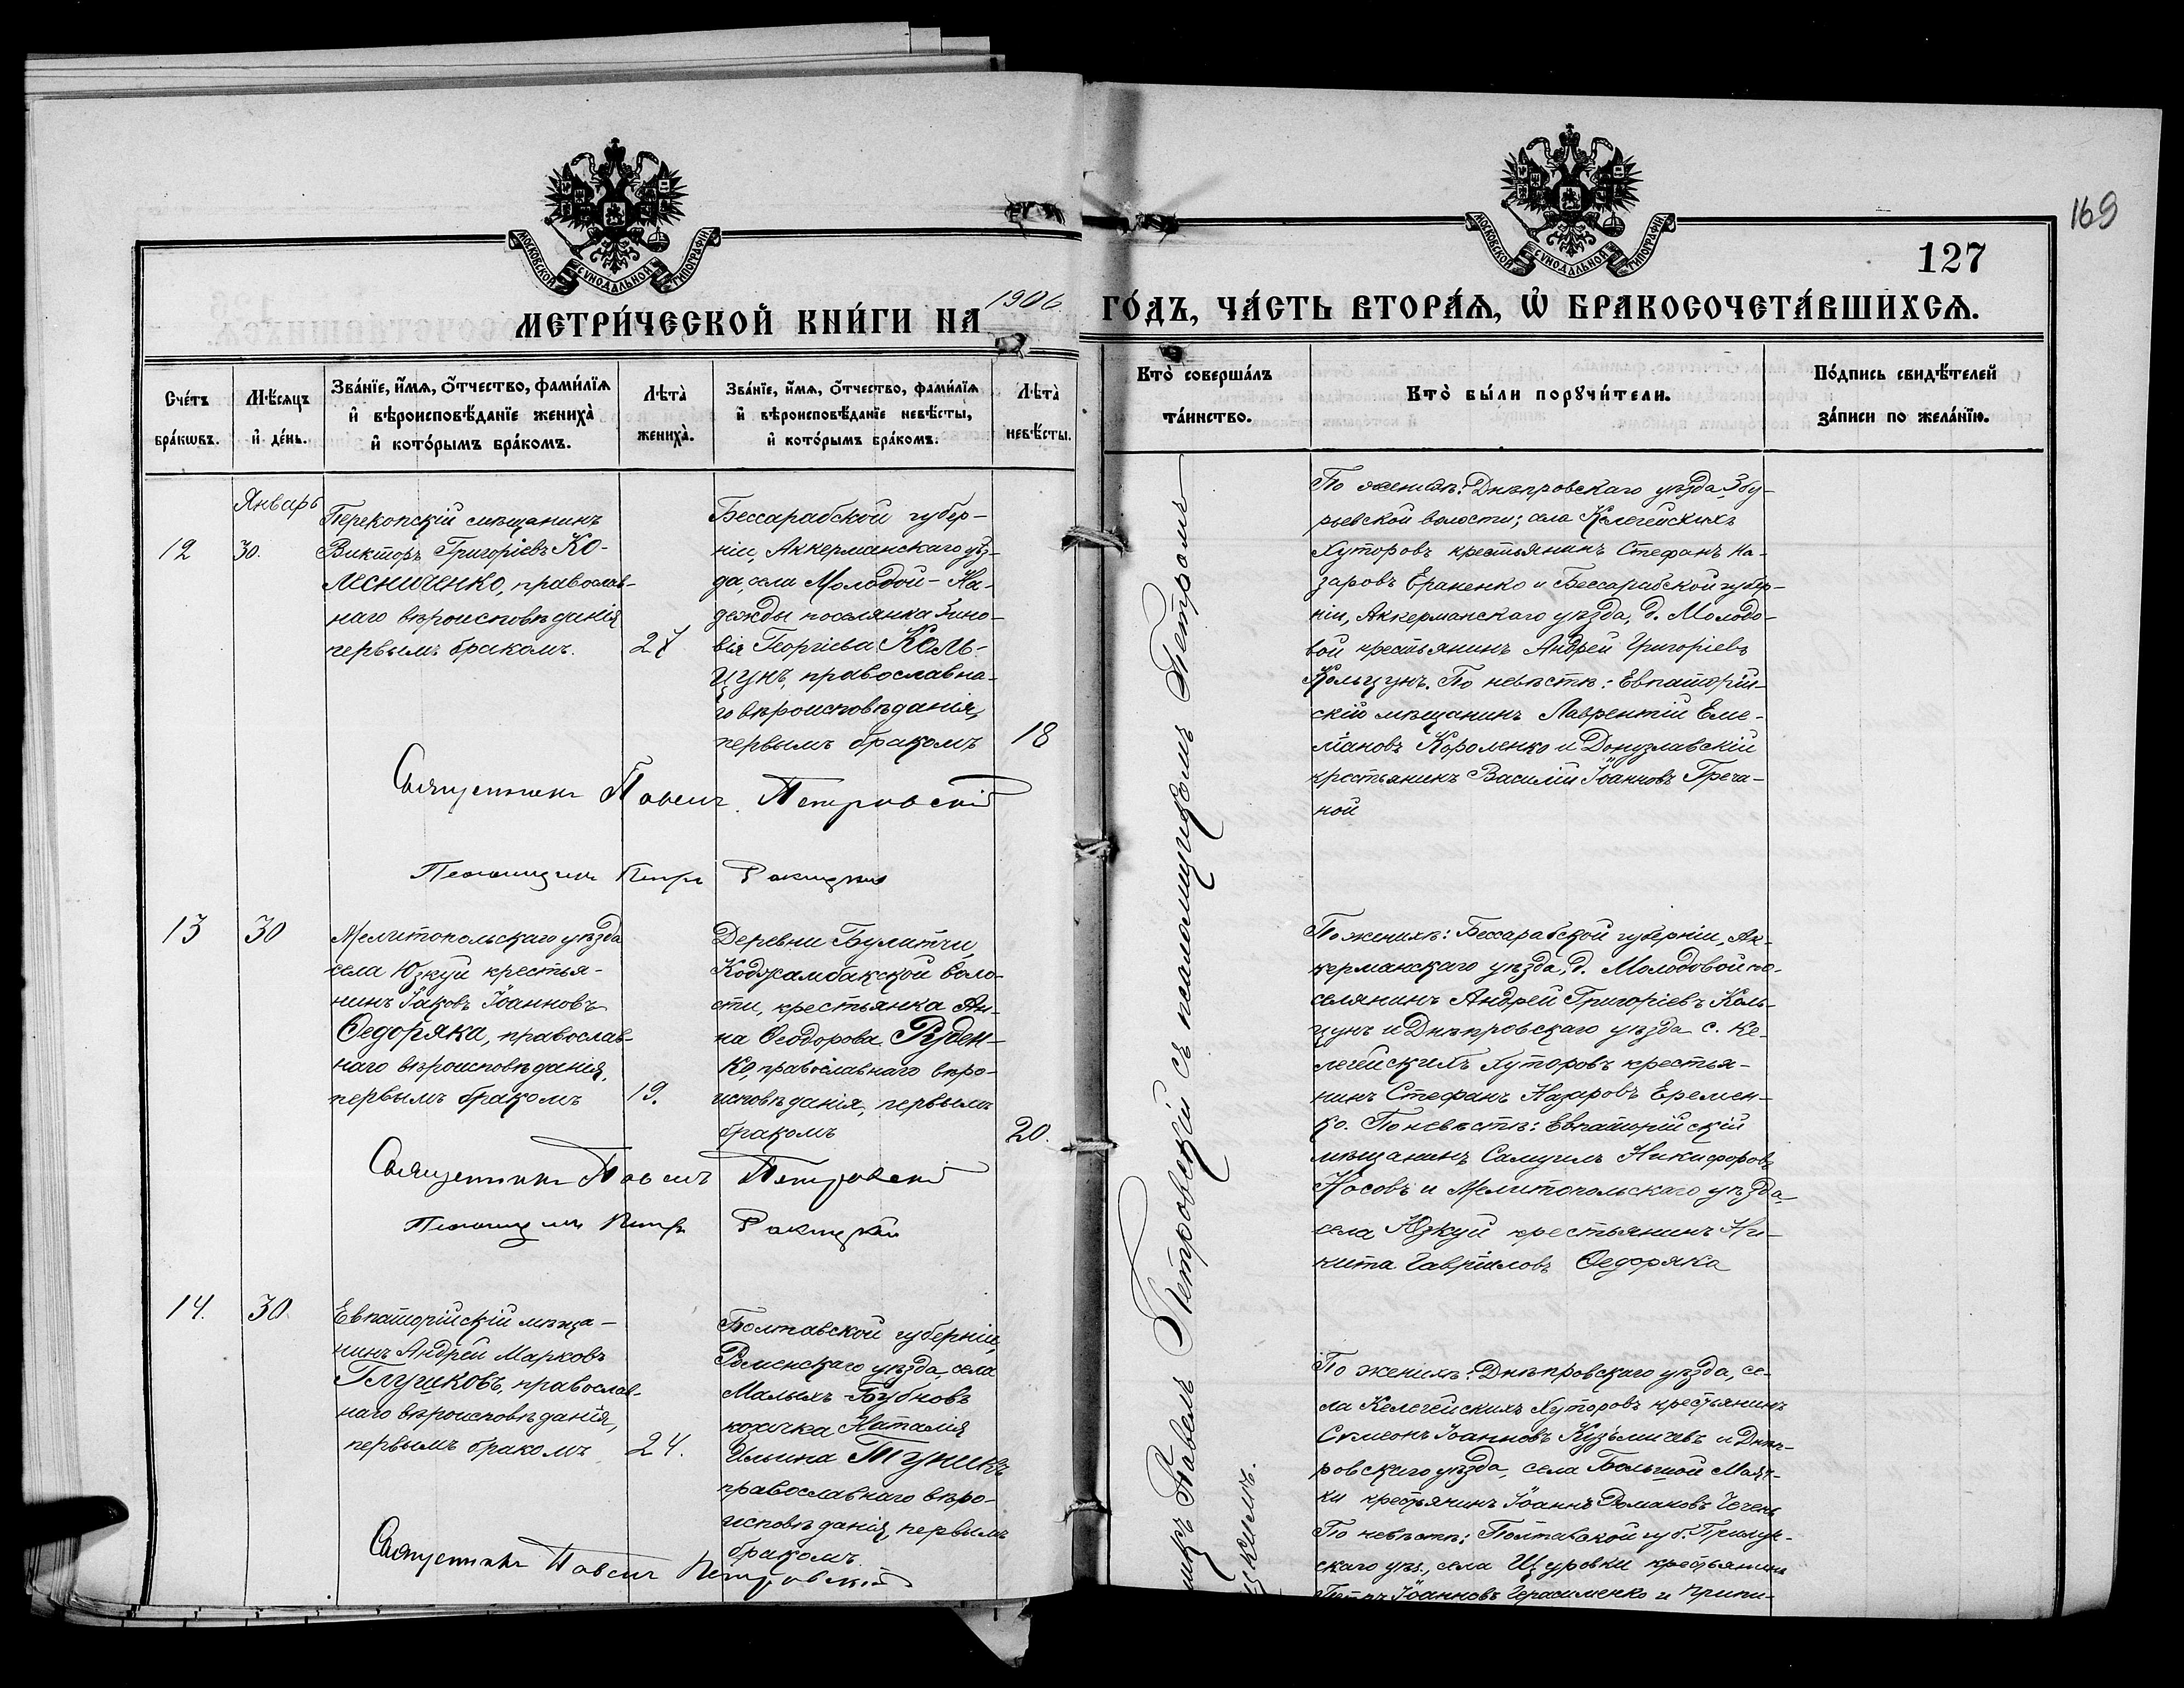 169
127
МОСКОВСКОЙ СѴНОДАЛЬНОЙ ТИПОГРАФІИ
МОСКОВСКОЙ СѴНОДАЛЬНОЙ ТИПОГРАФІИ
МЕТРИ́ЧЕСКОЙ КНИ́ГИ НА 1906. ГО́ДЪ, ЧА́СТЬ ВТОРА́Ѧ, Ѽ БРАКОСОЧЕТА́ВШИХСѦ.
Сче́тъ бра́кѡвъ.
Мѣ́сяцъ и҆ де́нь.
Зва́нїе, и҆́мѧ, ѻ҆́тчество, фами́лїѧ
и҆ вѣроисповѣ́данїе жениха̀
и҆ кото́рымъ бра́комъ.
Лѣта̀
жениха̀.
Зва́нїе, и҆́мѧ, ѻ҆́тчество, фами́лїѧ
и҆ вѣроисповѣ́данїе невѣ́сты,
и҆ кото́рымъ бра́комъ.
Лѣта̀
невѣ́сты.
Кто̀ соверша́лъ
та́инство.
Кто̀ бы́ли порꙋчи́тели.
По́дпись свидѣ́телей
за́писи по жела́нїю.
Январь
12
30.
Перекопскій мѣщанинъ
Викторъ Григоріевъ Ко-
лесниченко, православ-
наго вѣроисповѣданія
первымъ бракомъ.
27
Бессарабской губер-
ніи, Аккерманскаго уѣз-
да, села Молодой-На-
дежды поселянка Зино-
вія Георгіева Коль-
цунъ, православна-
го вѣроисповѣданія,
первымъ бракомъ
18
По женихѣ: Днѣпровскаго уѣзда Збу-
рьевской волости; села Келегейскихъ
Хуторовъ крестьянинъ Стефанъ На-
заровъ Ераненко и Бессарабской губер-
ніи, Аккерманскаго уѣзда, д. Молодо-
вой крестьянинъ Андрей Григоріевъ
Кольцунъ. По невѣстѣ: Евпаторій-
скій мѣщанинъ Лаврентій Еме-
ліановъ Короленко и Донузлавскій
крестьянинъ Василій Іоанновъ Греча-
ной
Священникъ Павелъ Петровскій
Псаломщикъ Петръ Ракицкій
13
30
Мелитопольскаго уѣзда
села Юзкуй крестья-
нинъ Іаковъ Іоанновъ
Ѳедоряка, православ-
наго вѣроисповѣданія,
первымъ бракомъ
19.
Деревни Булатчи,
Коджамбакской воло-
сти, крестьянка Ан-
на Ѳеодорова Руден-
ко, православнаго вѣро-
исповѣданія, первымъ
бракомъ
20.
По женихѣ: Бессарабской губерніи, Ак-
керманскаго уѣзда, д. Молодовой по-
селянинъ Андрей Григоріевъ Коль-
цунъ и Днѣпровскаго уѣзда с. Ке-
легейскихъ Хуторовъ крестья-
нинъ Стефанъ Назаровъ Еремен-
ко. По невѣстѣ: Евпаторійскій
мѣщанинъ Самуилъ Никифоровъ
Носовъ и Мелитопольскаго уѣзда
села Юзкуй крестьянинъ Ни-
кита Гавріиловъ Ѳедоряка
Священникъ Павелъ Петровскій
Псаломщикъ Петръ Ракицкій
14.
30.
Евпаторійскій мѣща-
нинъ Андрей Марковъ
Глушковъ, православ-
наго вѣроисповѣданія,
первымъ бракомъ
24.
Полтавской губерніи,
Роменскаго уѣзда, села
Малыхъ-Бубновъ
козачка Наталія
Ильина
православнаго вѣро-
исповѣданія, первымъ
бракомъ.
По женихѣ: Днѣпровскаго уѣзда, се-
ла Келегейскихъ Хуторовъ крестьянинъ
Симеонъ Іоанновъ Кузьмичевъ и Днѣп-
ровскаго уѣзда, села Большой Маяч-
ки крестьянинъ Іоаннъ Романовъ
По невѣстѣ: Полтавской губ. Прилук-
скаго уѣз., села Щуровки крестьянинъ
Петръ Іоанновъ Герасименко и
Священникъ Павелъ Петровскій
Павелъ Петровскій съ псаломщикомъ Петромъ